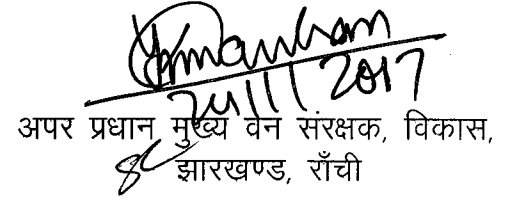 24/1/2017
अपर प्रधान मुख्य वन संरक्षक, विकास,
झारखण्ड, राँची